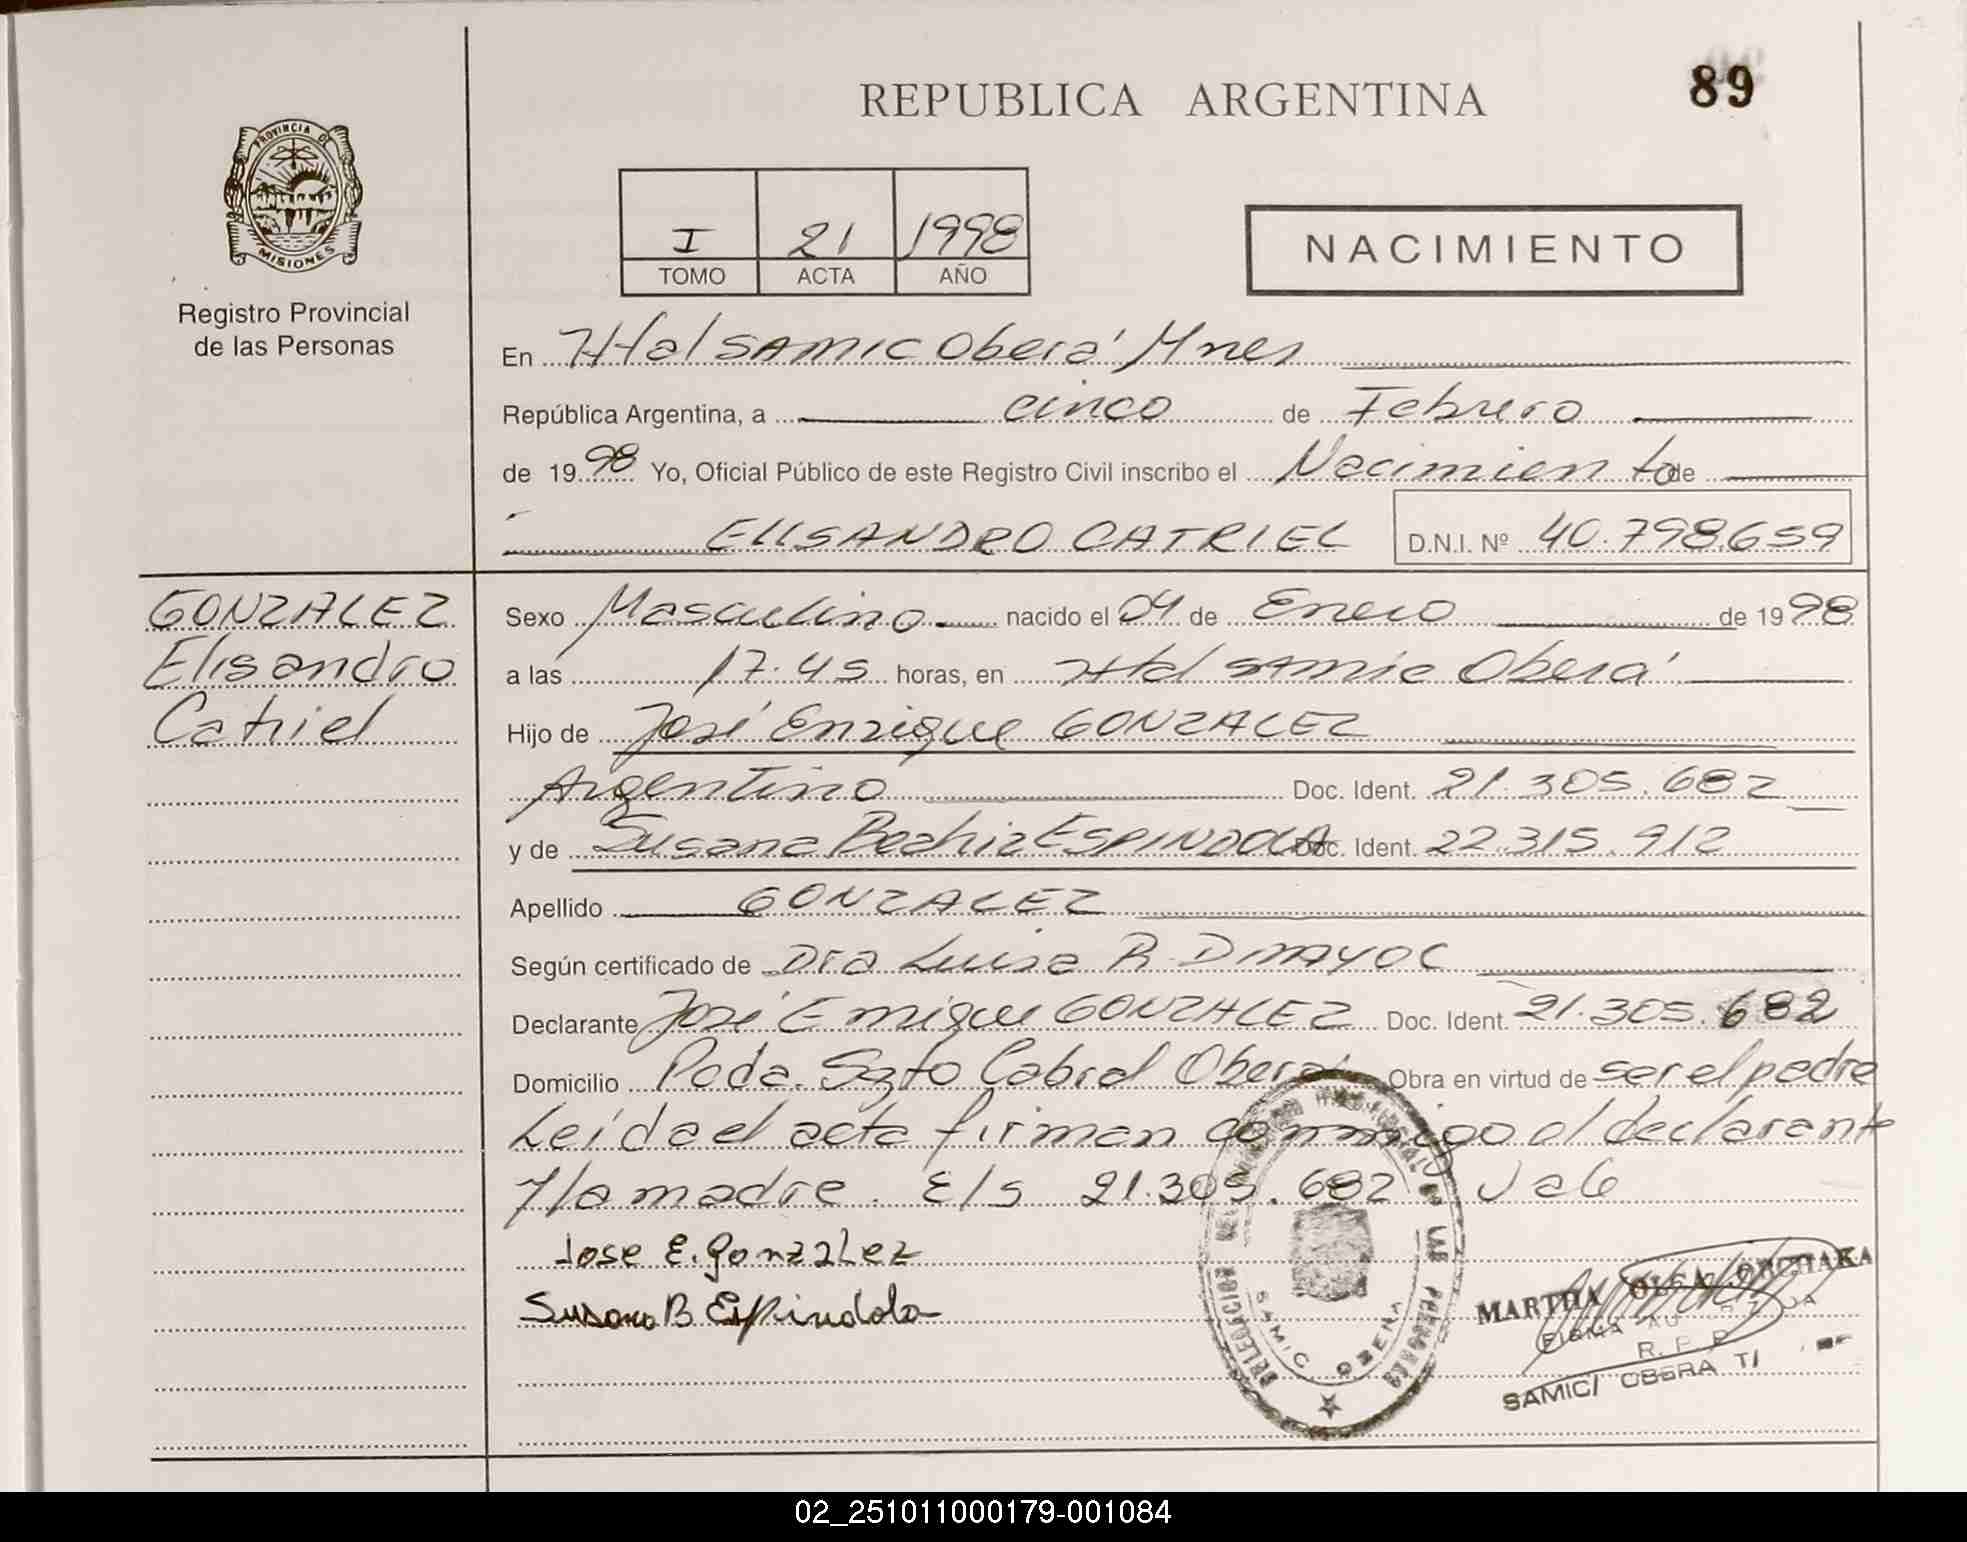 89
REPUBLICA ARGENTINA
PROVINCIA DE
MISIONES
Registro Provincial
de las Personas
I 21 1998
TOMO ACTA AÑO
NACIMIENTO
En Htal SAMIC Oberá Mnes
República Argentina, a cinco de Febrero
de 1998 Yo, Oficial Público de este Registro Civil inscribo el Nacimiento de
ELISANDRO CATRIEL D.N.I. Nº 40.798.659
GONZALEZ
Elisandro
Catriel
Sexo Masculino nacido el 04 de Enero de 1998
a las 17.45 horas, en Htal SAMIC Oberá
Hijo de José Enrique GONZALEZ
Argentino Doc. Ident. 21.305.682
y de Susana Beatriz ESPINDOLA Doc. Ident. 22.315.912
Apellido GONZALEZ
Según certificado de Dra Luisa R. DMAYOC
Declarante José Enrique GONZALEZ Doc. Ident. 21.305.682
Domicilio Pada. Sgto Cabral Oberá Obra en virtud de ser el padre
Leída el acta firman conmigo el declarante
y la madre. E/s 21.305.682 Vale
Jose E. gonzalez
Susana B Espindola
DELEGACION
DE LAS PERSONAS
SAMIC OBERA
MARTHA OLGA
R. P. P.
SAMIC/ OBERA
02_251011000179-001084